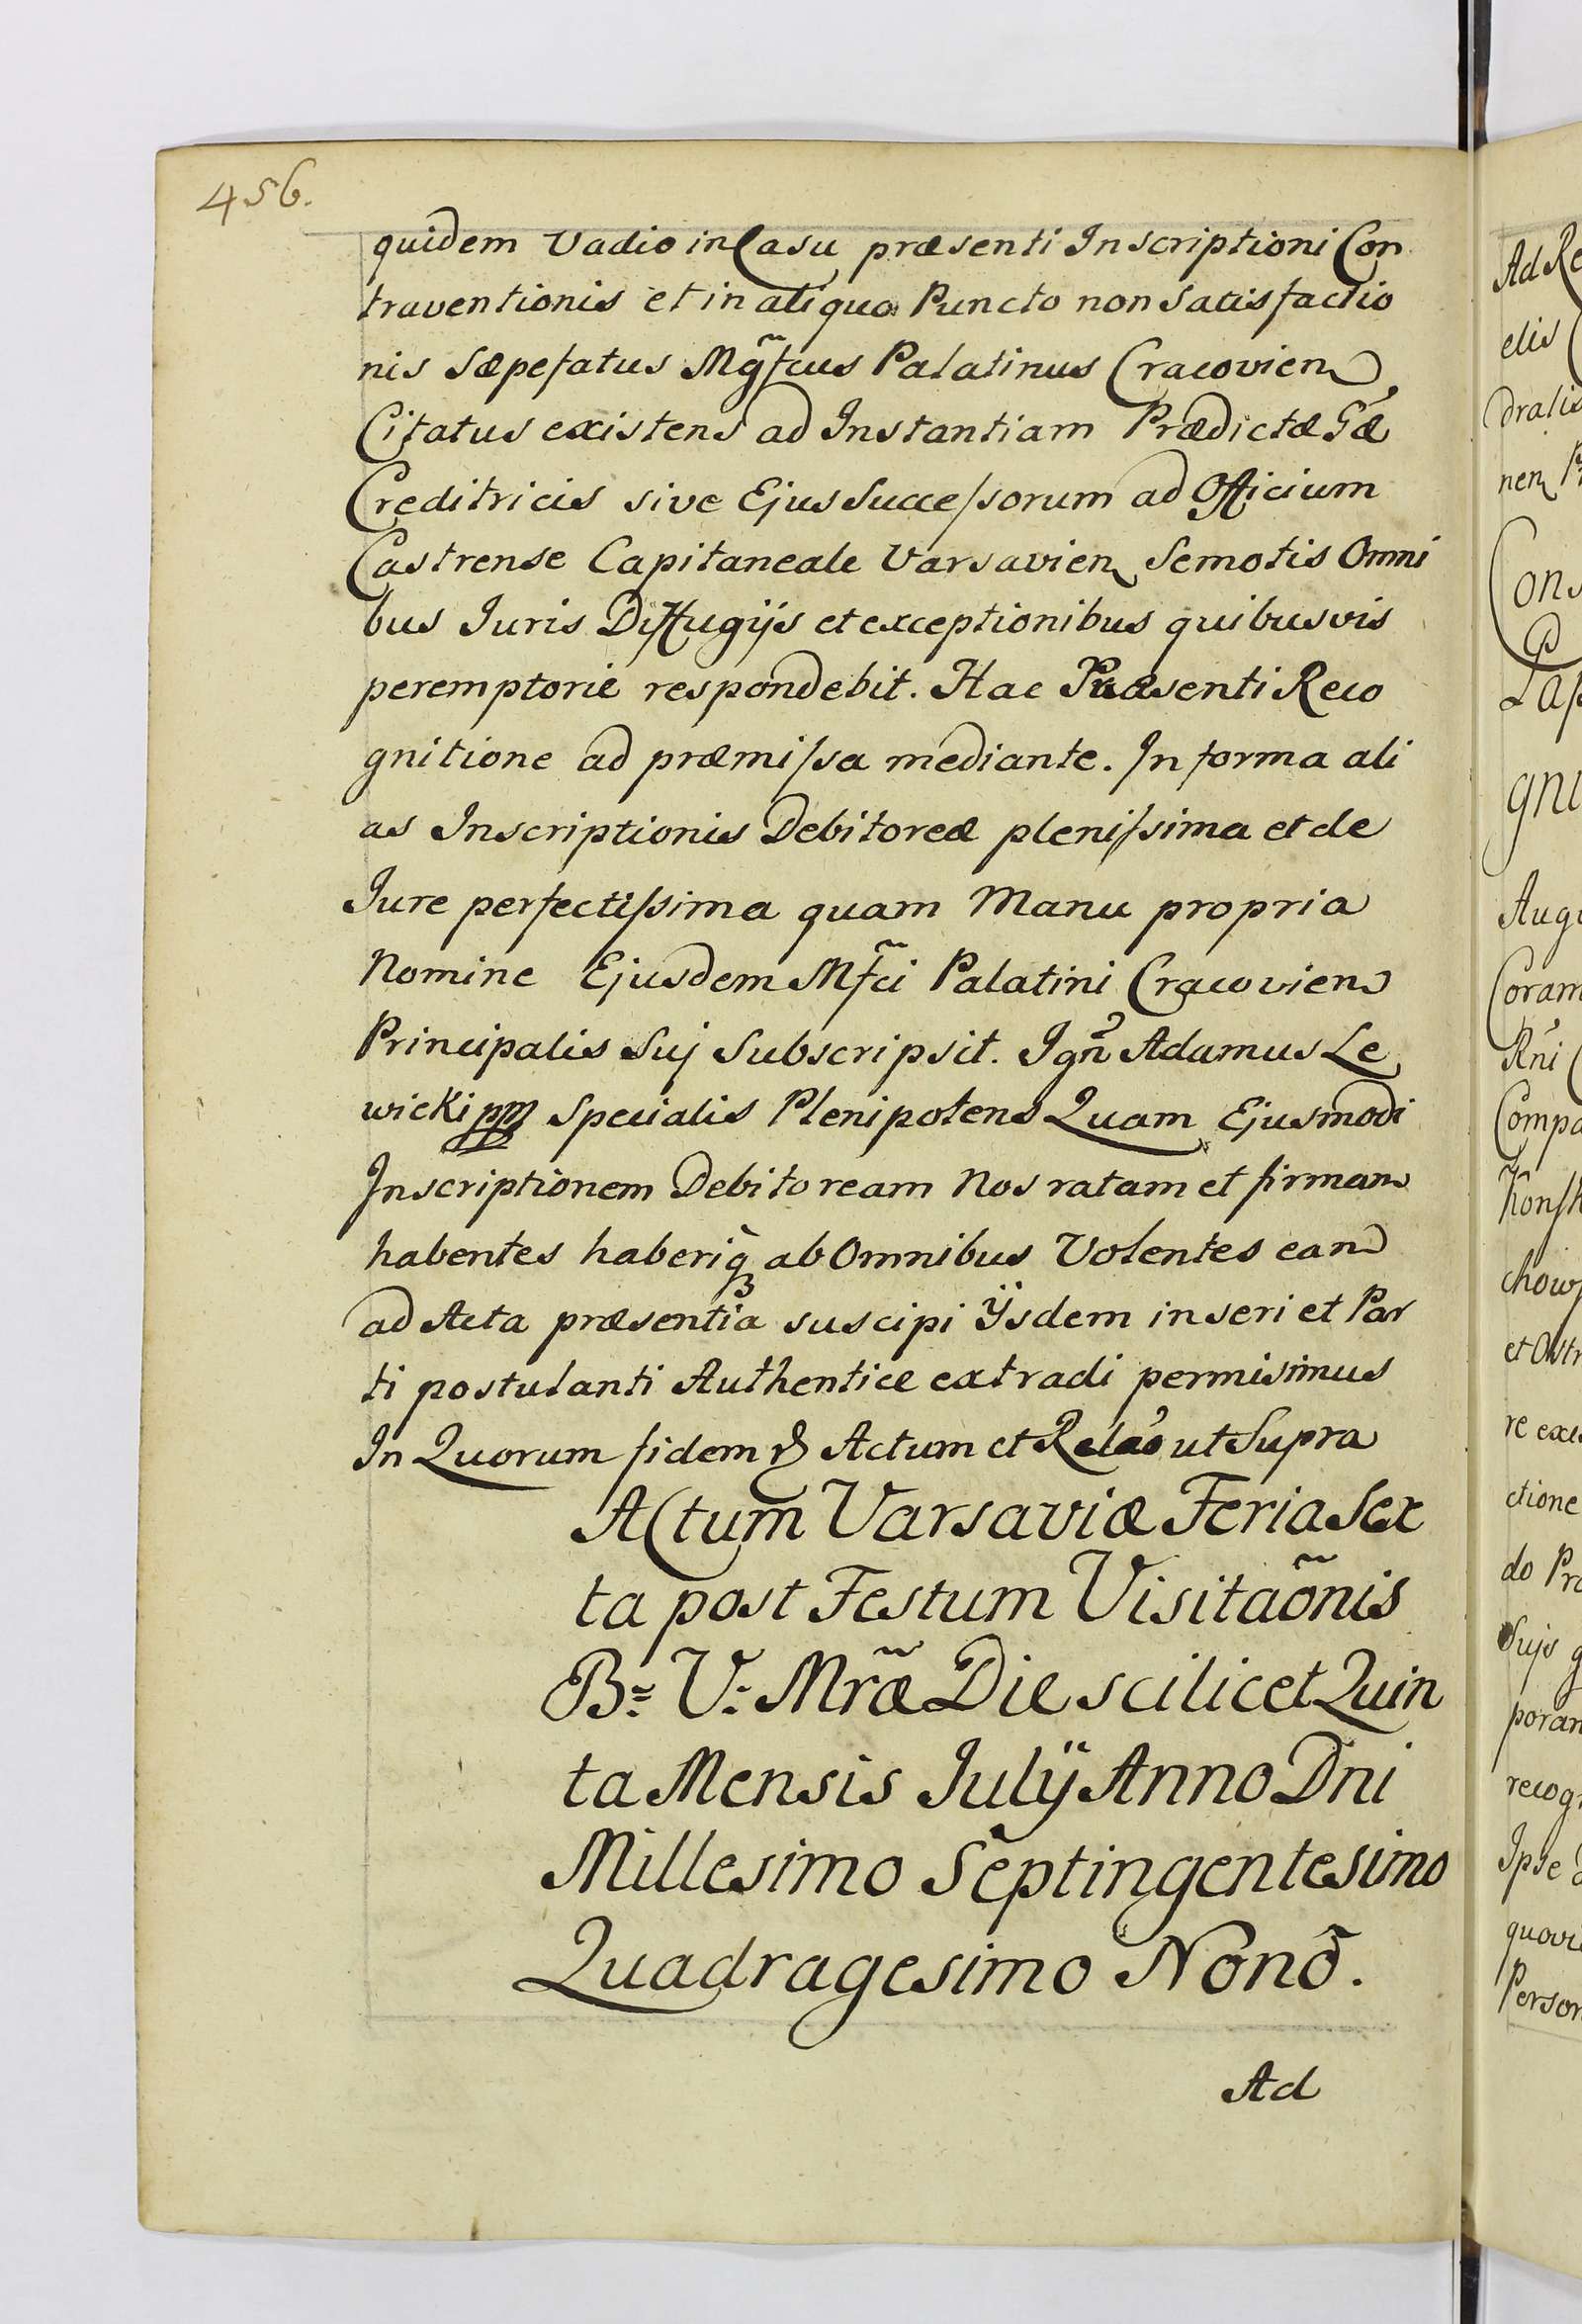 456.
quidem Vadio in Casu præsenti Inscriptioni Con
traventionis et in aliquo Puncto non Satisfactio
nis Sæpefatus Mg̃fcus Palatinus Cracovien
Citatus existens ad Instantiam Prædictæ Gæ
Creditricis sive Ejus Successorum ad Officium
Castrense Capitaneale Varsavien Semotis Omni
bus Iuris Diffugijs et exceptionibus quibusvis
peremptorie respondebit. Hac Præsenti Reco
gnitione ad præmissa mediante. In forma ali
as Inscriptionis Debitoreæ plenissima et de
Iure perfectissima quam Manu propria
Nomine Ejusdem Mf̃ci Palatini Cracovien
Principalis Suj Subscripsit. Ign̉ Adamus Le
wicki ppm Specialis Plenipotens Quam Ejusmodi
Inscriptionem Debitoream Nos ratam et firmam
habentes haberiq̀ꝫ ab Omnibus Volentes ean
ad Acta præsentia suscipi Ÿsdem inseri et Par
ti postulanti Authentice extradi permisimus
In Quorum fidem Actum et Relaõ ut Supra
Actum Varsaviæ Feria Sex
ta post Festum Visitaõnis
B= V: Mrã̃e Die scilicet Quin
ta Mensis Julÿ Anno Dni
Millesimo Septingentesimo
Quadragesimo Nono.
Ad
Ad Re
elis
dralis
nen
Cons
Lap
gni
Augu
Coram
Rńi
Compa
Konsk
chow
et Ostr
re exis
ctione
do Pro
Sujs
poran
recogn
Ipse
quovis
Person